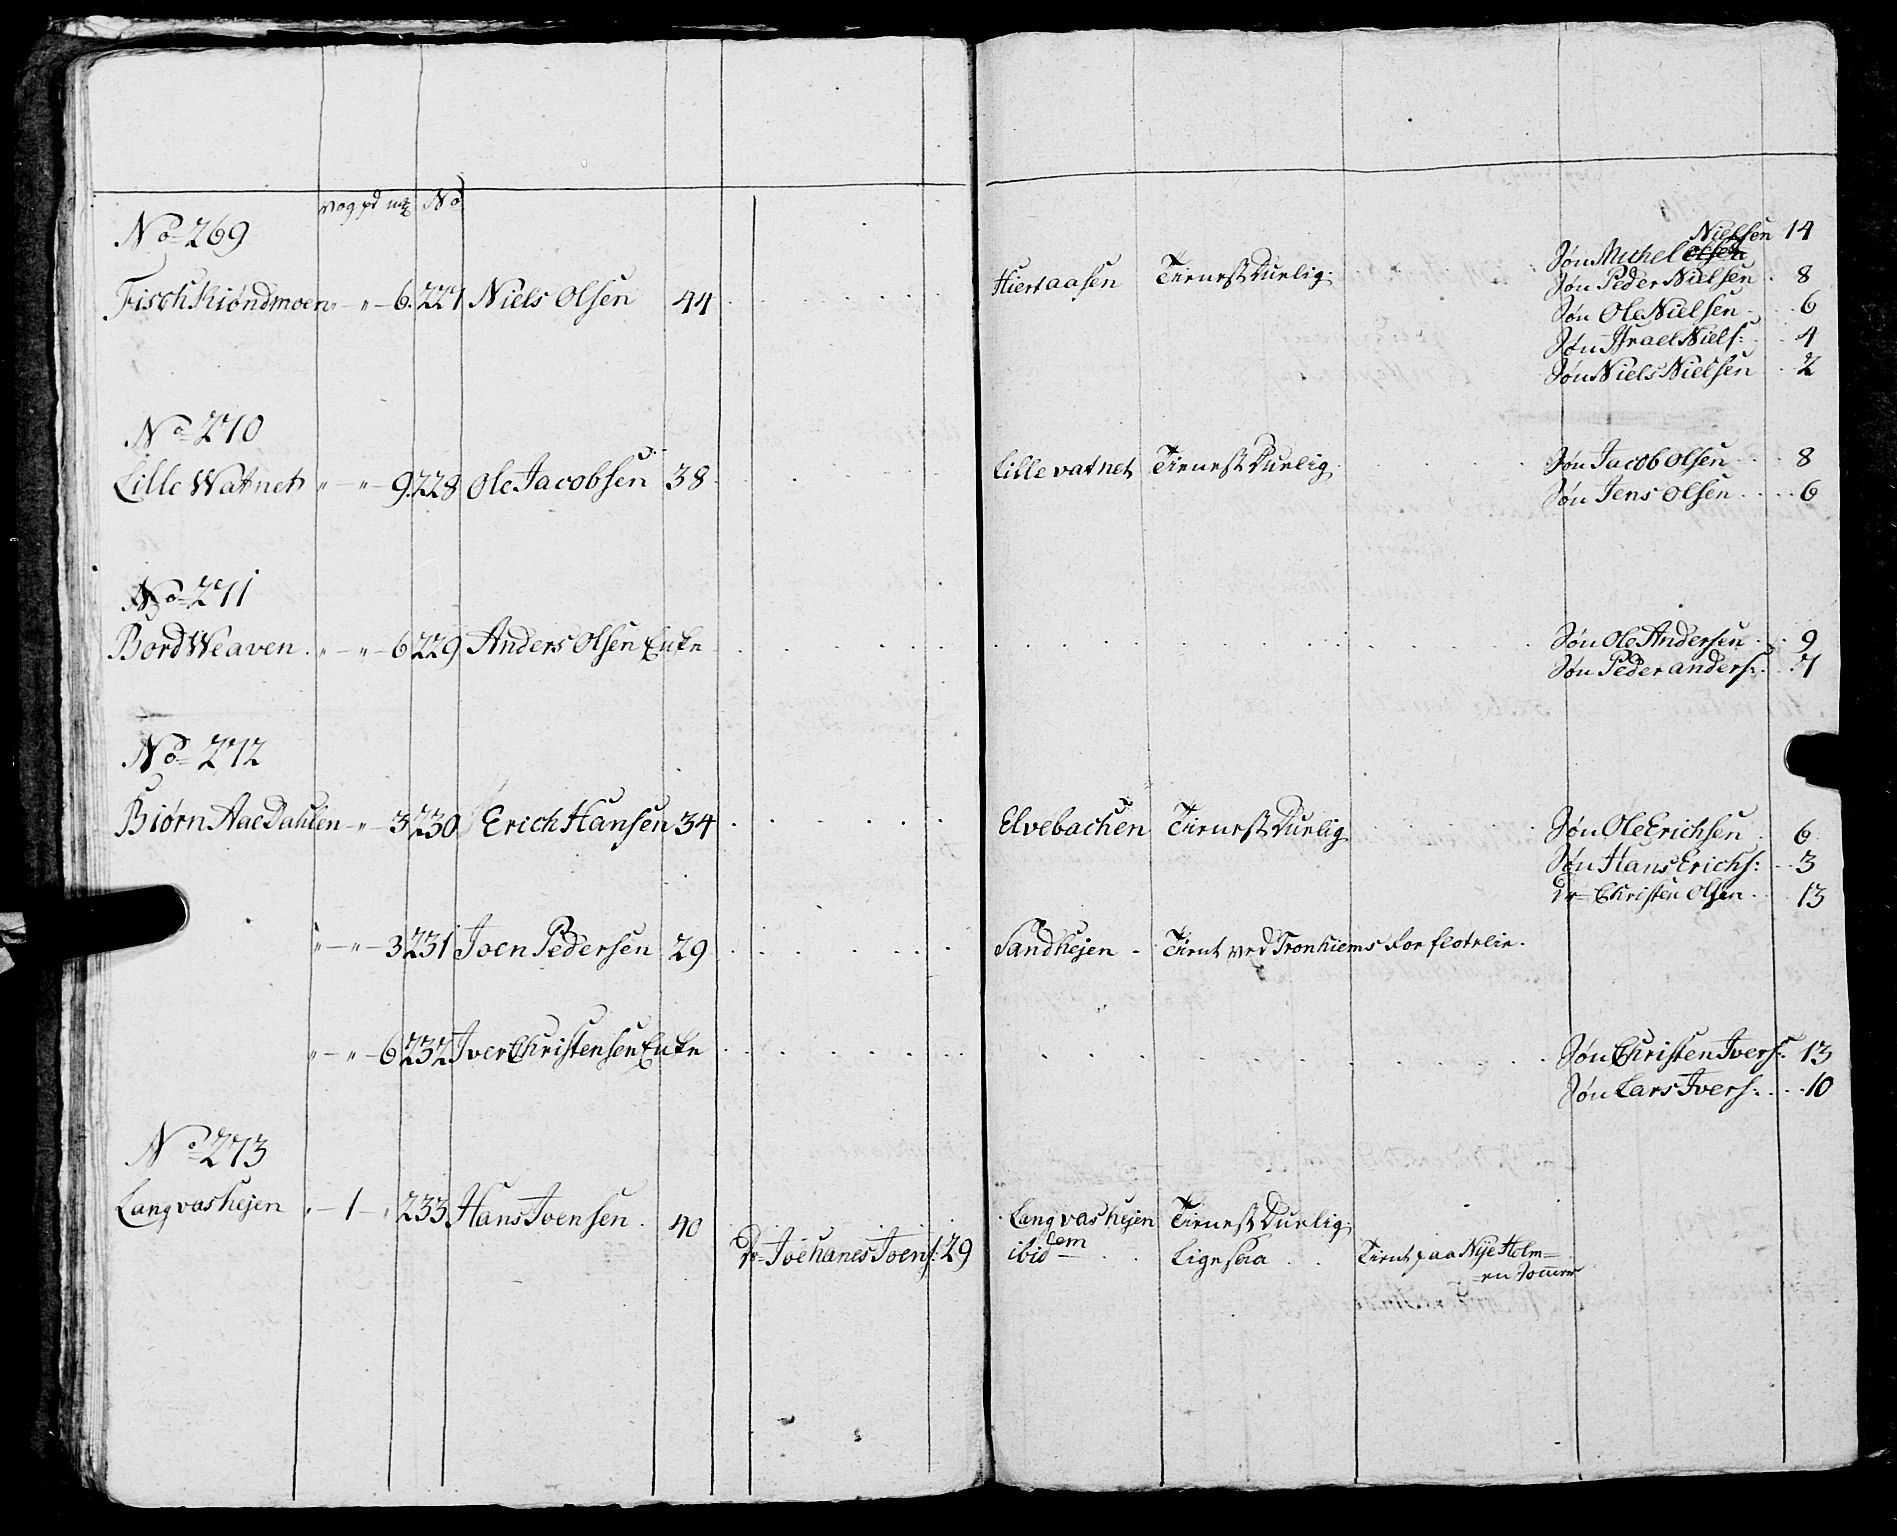 vog pd mk No
No 269
Fisch Kiøndmoen " - " - 6. 227 Niels Olsen 44 Hiertaasen Tienest Duelig: Søn Michel Olsen Nielsen 14
Søn Peder Nielsen 8
Søn Ole Nielsen 6
Søn Israel Niels: 4
Søn Niels Nielsen 2
No 270
Lille Watnet " - " - 9. 228 Ole Jacobsen 38 Lillevatnet Tienest Duelig Søn Jacob Olsen 8
Søn Jens Olsen 6
No 271
Bord Weaven " - " - 6 229 Anders Olsen Enke Søn Ole Andersen 9
Søn Peder anders: 7
No 272
Biørn Aae Dahlen - " - 3 230 Erich Hansen 34 Elvebachen Tienest Duelig Søn Ole Erichsen 6
Søn Hans Erichs: 3
Dr Christen Olsen 13
" - " - 3 231 Joen Pedersen 29 Sandhejen - Tient ved Tronhiems
" - " - 6 232 Iver Christensen Enke Søn Christen Ivers: 13
Søn Lars Ivers: 10
No 273
Langvashejen " - 1 - " 233 Hans Joensen 40 Langvashejen Tienest Duelig
Dr Joehanes Joens: 29 ibidem Ligesaa Tient paa Nye Holm=